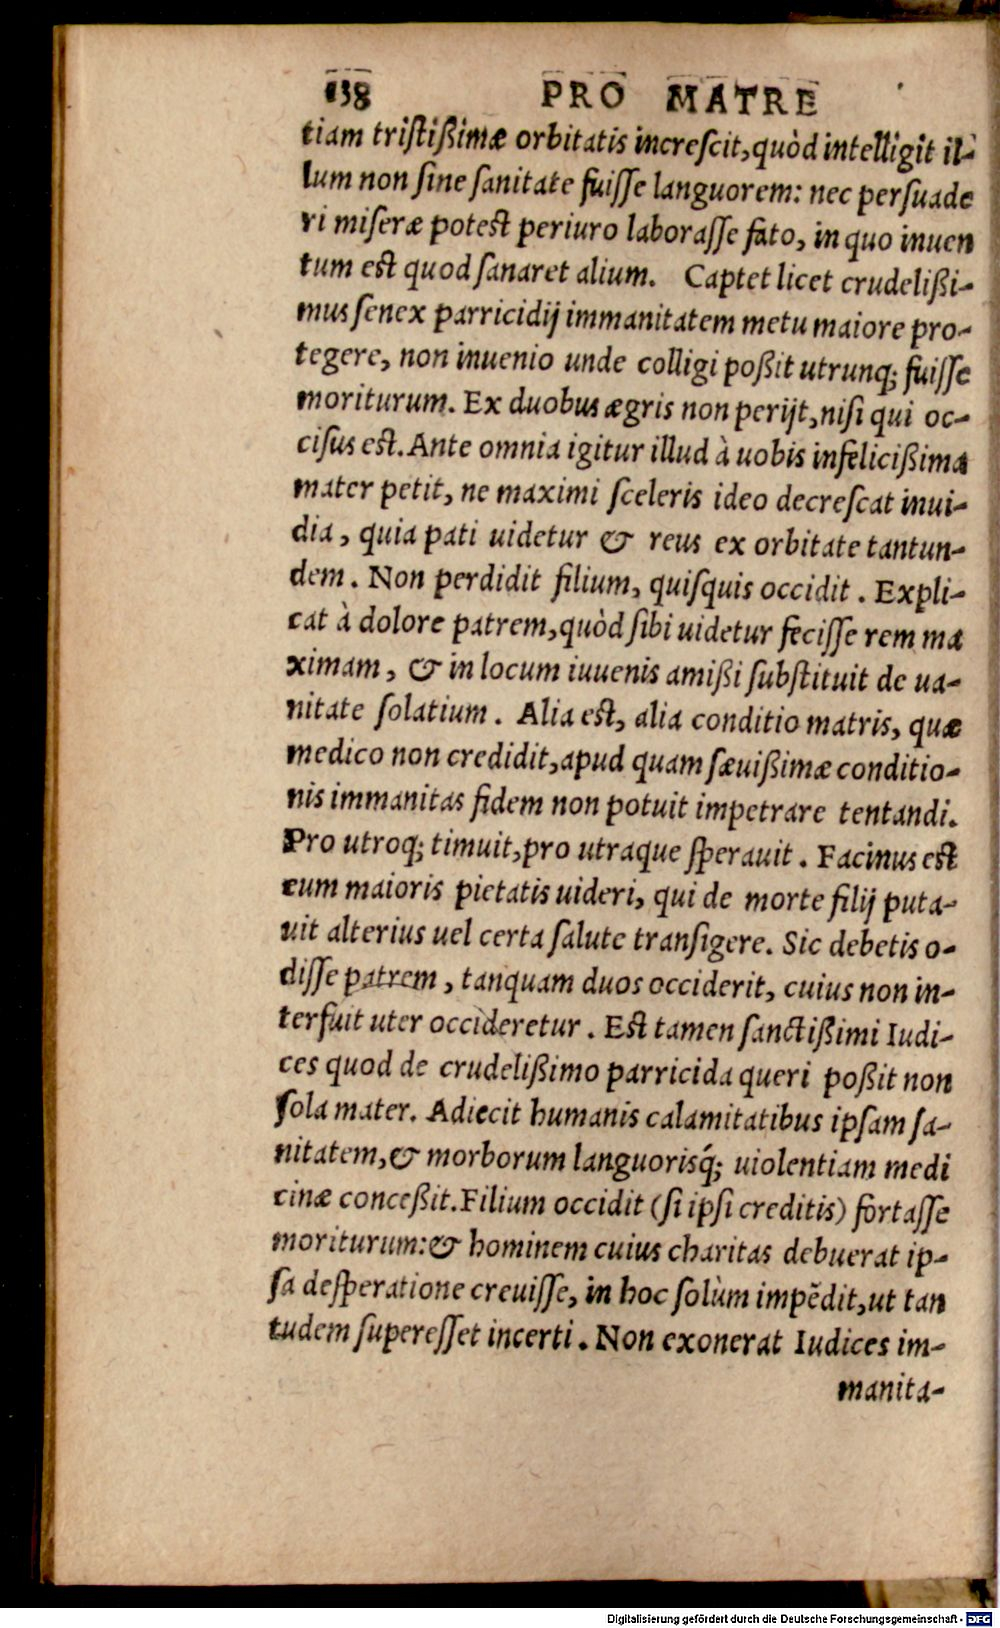 138 PRO MATRE
tiam tristißimæ orbitatis increscit, quòd intelligit il-
lum non sine sanitate fuisse languorem: nec persuade
ri miseræ potest periuro laborasse fato, in quo inuen
tum est quod sanaret alium. Captet licet crudelißi-
mus senex parricidij immanitatem metu maiore pro-
tegere, non inuenio unde colligi poßit utrunq; fuisse
moriturum. Ex duobus ægris non perijt, nisi qui oc-
cisus est. Ante omnia igitur illud à uobis infelicißima
mater petit, ne maximi sceleris ideo decrescat inui-
dia, quia pati uidetur & reus ex orbitate tantun-
dem. Non perdidit filium, quisquis occidit. Expli-
cat à dolore patrem, quòd sibi uidetur fecisse rem ma
ximam, & in locum iuuenis amißi substituit de ua-
nitate solatium. Alia est, alia conditio matris, quæ
medico non credidit, apud quam sæuißimæ conditio-
nis immanitas fidem non potuit impetrare tentandi.
Pro utroq; timuit, pro utraque sperauit. Facinus est
eum maioris pietatis uideri, qui de morte filij puta-
uit alterius uel certa salute transigere. Sic debetis o-
disse patrem, tanquam duos occiderit, cuius non in-
terfuit uter occideretur. Est tamen sanctißimi Iudi-
ces quod de crudelißimo parricida queri poßit non
sola mater. Adiecit humanis calamitatibus ipsam sa-
nitatem, & morborum languorisq́; uiolentiam medi
cinæ conceßit. Filium occidit (si ipsi creditis) fortasse
moriturum: & hominem cuius charitas debuerat ip-
sa desperatione creuisse, in hoc solùm impẽdit, ut tan
tudem superesset incerti. Non exonerat Iudices im-
manita-
Digitalisierung gefördert durch die Deutsche Forschungsgemeinschaft - DFG